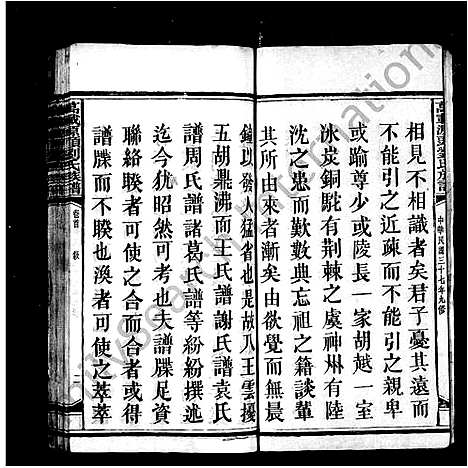 萬載源頭劉氏族譜
中華民國三十七年九修
相見不相識者矣君子憂其遠而
不能引之使近疎而不能引之親卑
或踰尊少或陵長一家胡越一室
冰炭銅駝有荆棘之虞神州有陸
沈之悲而歎數典忘祖之籍談輩
其所由來者漸矣由欲覺而無晨
鐘以發人猛省也是故八王雲擾
五胡鼎沸而王氏譜謝氏譜袁氏
譜周氏譜諸葛氏譜等紛紛撰述
迄今猶昭然可考也夫譜牒足資
聯絡睽者可使之合而合者或得
譜牒而不睽也渙者可使之萃萃
萬載源頭劉氏族譜
卷首
敘